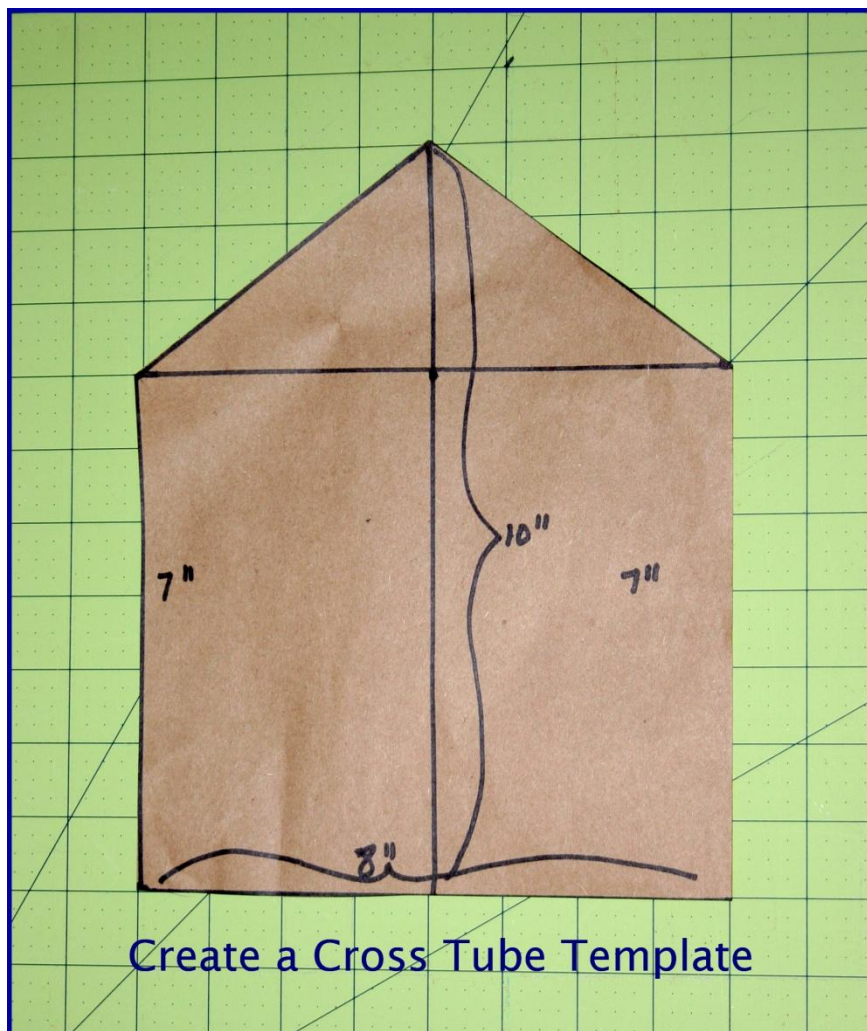 10"
7" 7"
8"
Create a Cross Tube Template